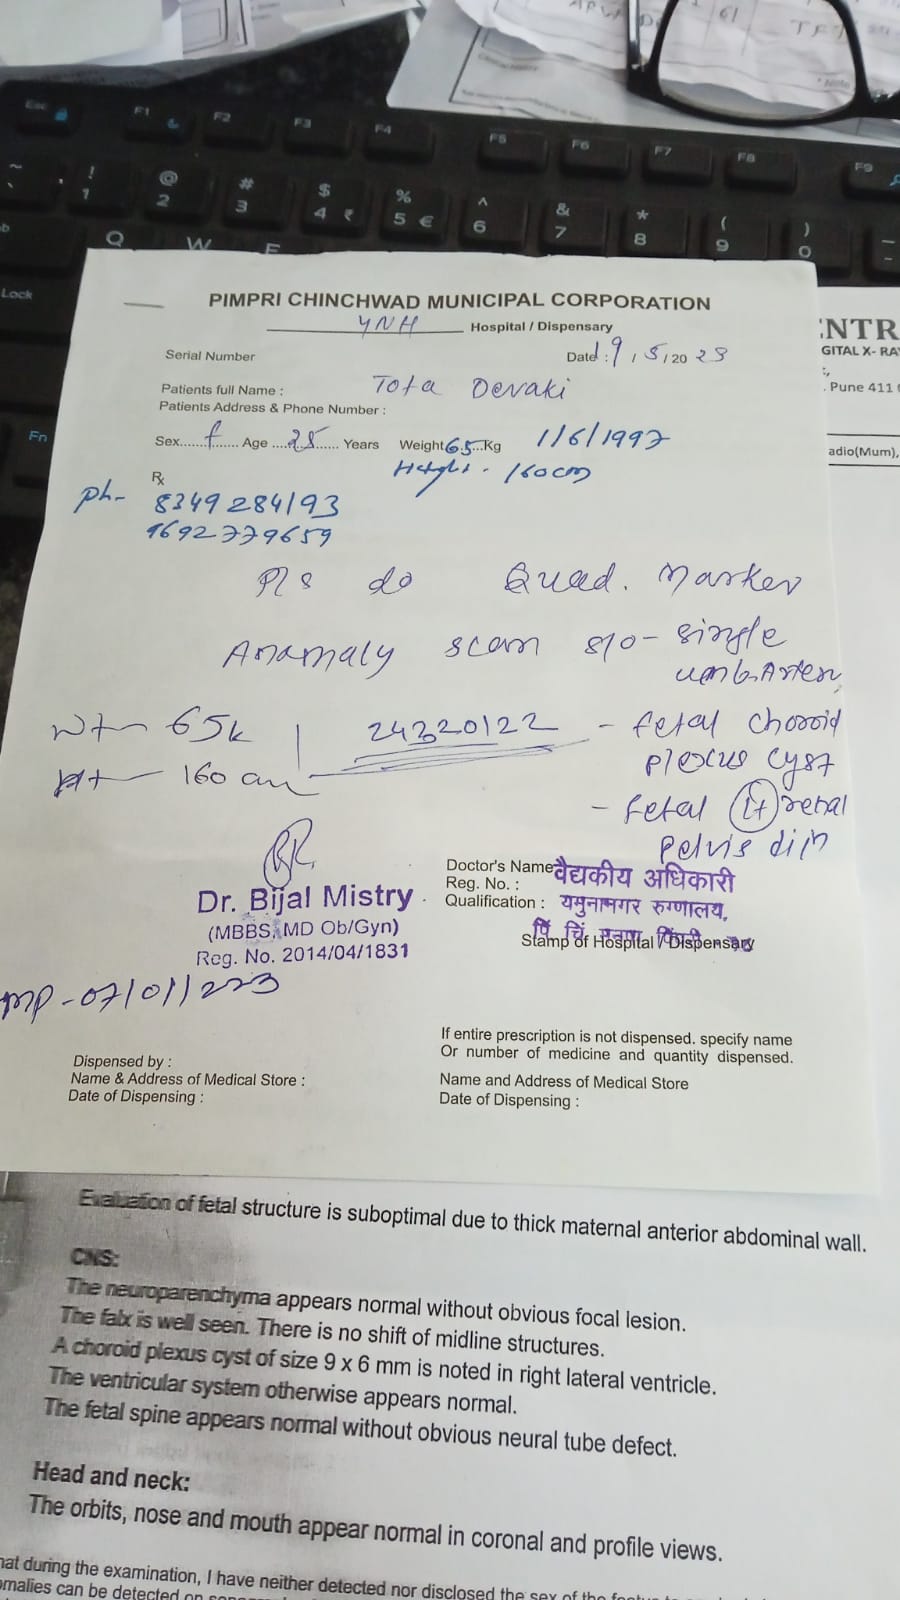 PIMPRI CHINCHWAD MUNICIPAL CORPORATION
YNH Hospital / Dispensary
Serial Number
Date : 19 / 5 / 20 23
Patients full Name : Tota Devaki
Patients Address & Phone Number :
Sex....f.... Age ....25.... Years Weight 65...Kg 1/6/1997
Height - 160cm
Rx
Ph- 8349284193
9692779659
Pls do Quad. Marker
Anamaly scan s/o - single
umb. Artery
Wt - 65k 24320122 - fetal choroid
plexus cyst
Ht - 160 cm
- fetal Lt renal
pelvis diln
Dr. Bijal Mistry
(MBBS, MD Ob/Gyn)
Reg. No. 2014/04/1831
Doctor's Name वैद्यकीय अधिकारी
Reg. No. :
Qualification : यमुनानगर रुग्णालय,
Stamp of Hospital / Dispensary
mp - 07/01/223
If entire prescription is not dispensed. specify name
Or number of medicine and quantity dispensed.
Dispensed by :
Name & Address of Medical Store :
Date of Dispensing :
Name and Address of Medical Store
Date of Dispensing :
Evaluation of fetal structure is suboptimal due to thick maternal anterior abdominal wall.
CNS:
The neuroparenchyma appears normal without obvious focal lesion.
The falx is well seen. There is no shift of midline structures.
A choroid plexus cyst of size 9 x 6 mm is noted in right lateral ventricle.
The ventricular system otherwise appears normal.
The fetal spine appears normal without obvious neural tube defect.
Head and neck:
The orbits, nose and mouth appear normal in coronal and profile views.
hat during the examination, I have neither detected nor disclosed the sex of the
omalies can be detected on
ENTR
GITAL X- RA
, Pune 411
adio(Mum),